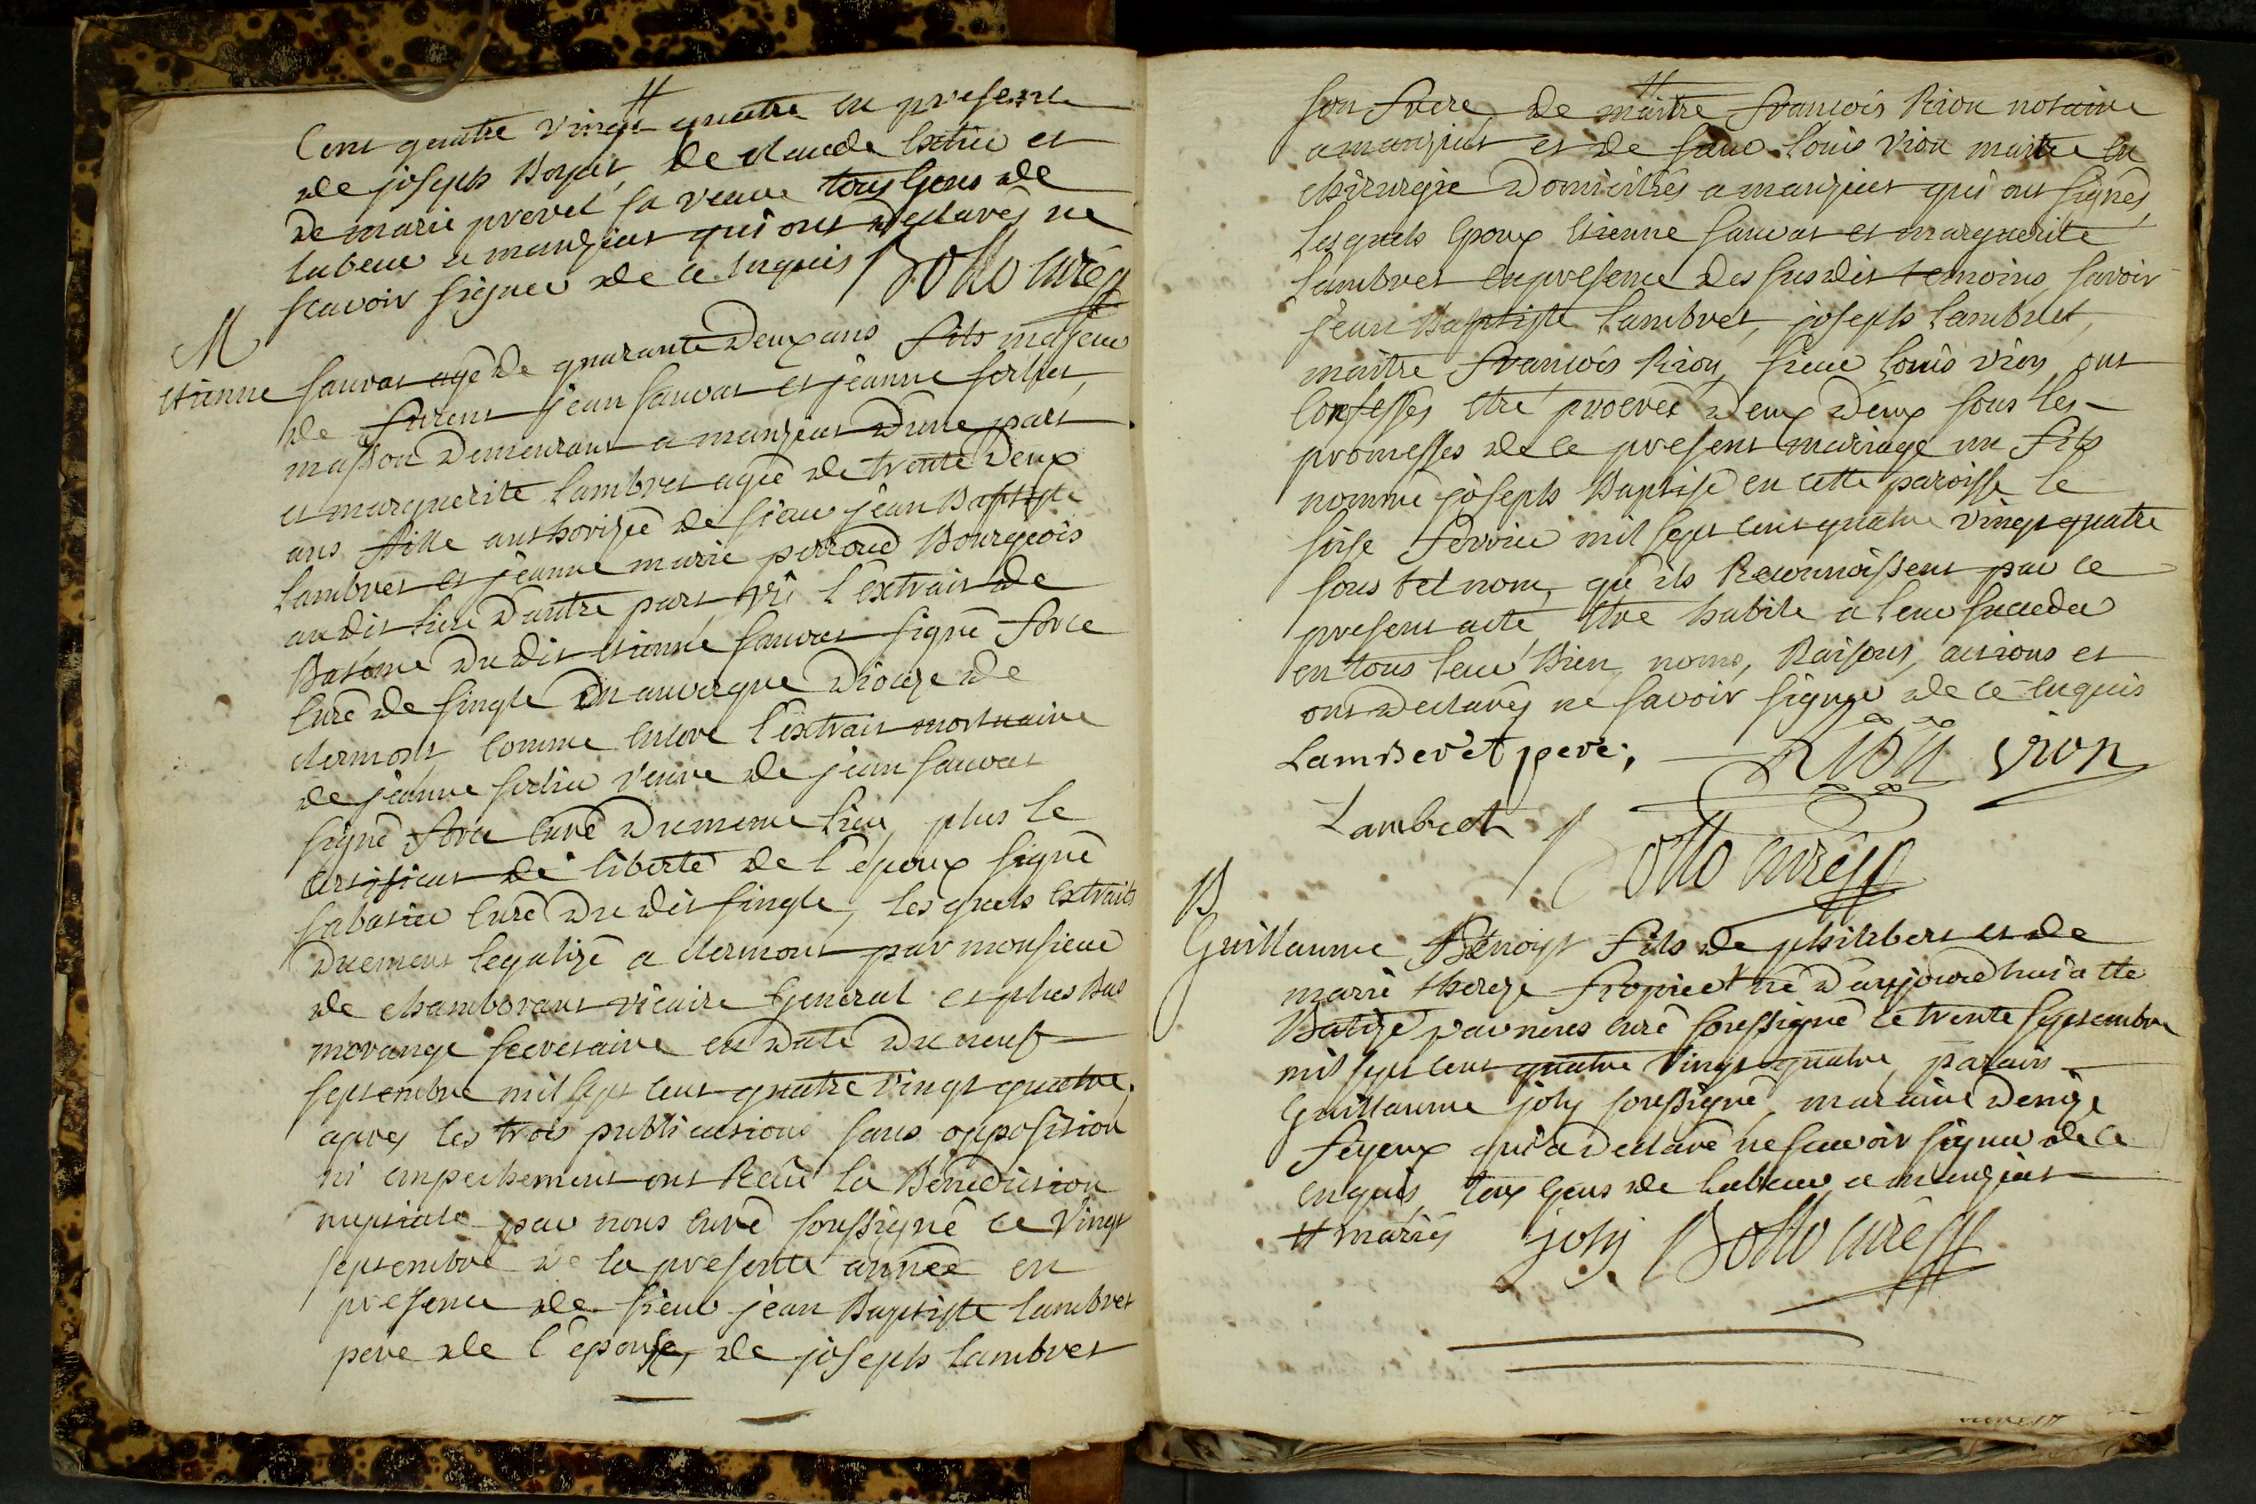 Cent quatre vingt quatre en presence
de joseph Boyat, de claude Extier et
de marie prevel sa veuve tous Gens de
labeur a manziat qui ont declarés ne
scavoir signer de ce Enquis Botto curé
M
etienne sauvat agé de quarante deux ans fils majeur
de furent jean sauvat et jeanne
masson demeurant a manziat d'une part
et marguerite Lambret agée de trente deux
ans fille authorizée de sieur jean Baptiste
Lambret et jeanne marie perroud Bourgeois
audit lieu d'autre part vû l'extrait de
Batême dudit etienne sauvat signé force
curé de single En auvergne Diocèze de
clermont comme Encore l'extrait mortuaire
de jeanne veuve de jean sauvat
signé force curé du meme lieu, plus le
certificat de liberté de l'époux signé
sabatier curé du dit single, les quels extraits
duement legalizé a clermont par monsieur
de chamborant vicaire General et plus Bas
morange secretaire en date du neuf
septembre mil sept cent quatre vingt quatre,
aprés les trois publications sans opposition
ni empechement ont Recû la Benediction
nuptiale par nous curé soussigné ce Vingt
septembre de la presente année en
presence de sieur jean Baptiste Lambret
pere de l'épouse, de joseph Lambret
son frere de maître françois Rion notaire
a manziat et de sieur Loüis vion maitre en
chirurgie Domiciliés a manziat qui ont signés,
Lesquels Epoux Etienne sauvat et marguerite
Lambret en presence des susdit temoins, savoir
jean Baptiste Lambret, joseph Lambret,
maître françois Rion, sieur Loüis Vion ont
Confessés être procréé d'eux deux sous les
promesses de ce present mariage un fils
nommé joseph Baptisé en cette paroisse le
seise fevrier mil sept cent quatre vingt quatre
sous tel nom, qu'ils Reconnoissent par ce
present acte être habile a leur succeder
en tous leur Bien, noms, Raisons, actions et
ont declarés ne savoir signer de ce Enquis
Lamberet pere, Rion vion
Lambret Botto curé
B
Guillaume Benoist fils de philibert et de
marie thereze né d'aujourd'hui a été
Batizé par nous curé soussigné ce trente septembre
mil sept cent quatre vingt quatre, parain
Guillaume joly soussigné, maraine Denize
feyeux qui a declaré ne scavoir signer de ce
enquis, tous Gens de labeur a manziat
# mariés joly Botto curé